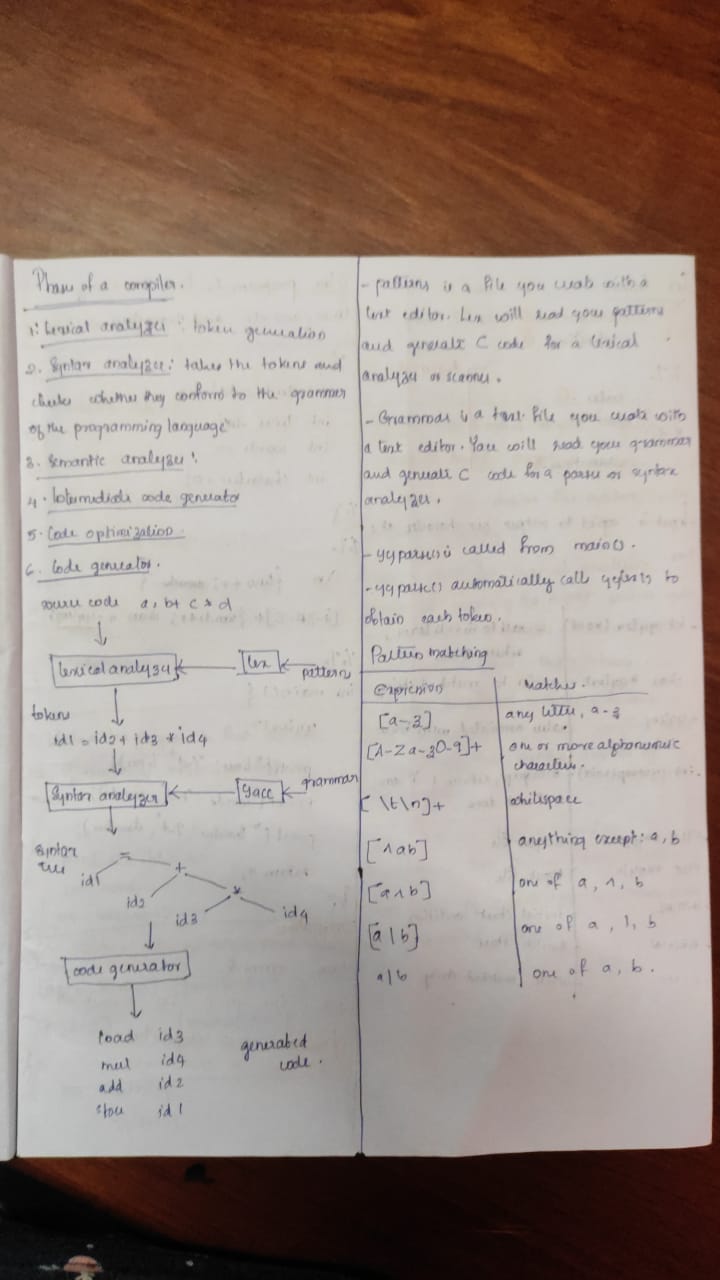 Phases of a compiler.
1: Lexical analyzer : token generation
2. Syntax analyzer: takes the tokens and
checks whether they conform to the grammar
of the programming language
3. Semantic analyzer :
4. Intermediate code generator
5. Code optimization
6. Code generator.
source code a, b+ c * d
lexical analyzer
lex
pattern
tokens
id1 = id2 + id3 * id4
Syntax analyzer
Yacc
grammar
Syntax
tree
=
id1
+
id2
*
id3
id4
code generator
load id3
mul id4
add id2
store id1
generated
code.
- patterns is a file you create with a
text editor. Lex will read your patterns
and generate C code for a lexical
analyzer or scanner.
- Grammar is a text file you create with
a text editor. You will read your grammar
and generate C code for a parser or syntax
analyzer.
- yyparse() is called from main().
- yyparse() automatically calls to
obtain each token.
Pattern matching
Expression
Matches
[a-z]
any letter, a-z
[A-Za-z0-9]+
one or more alphanumeric
characters.
[ \t\n]+
whitespace
[^ab]
anything except: a, b
[a^b]
one of a, ^, b
[a|b]
one of a, |, b
a|b
one of a, b.